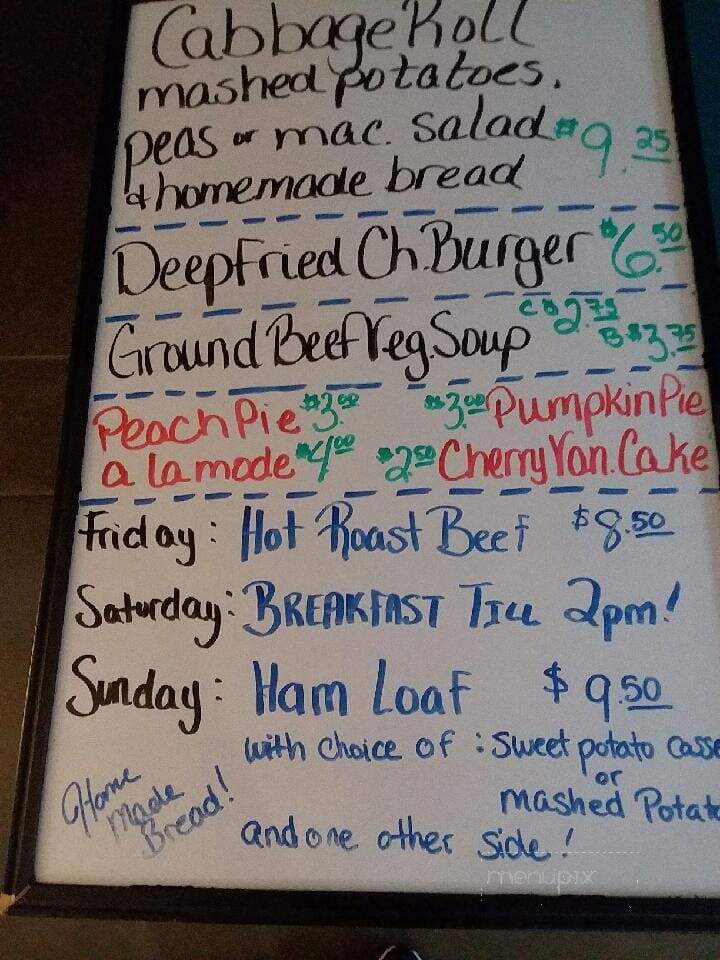 Cabbage Roll
mashed potatoes.
peas or mac. salad $9.25
& homemade bread
Deep Fried Ch. Burger $6.50
Ground Beef Veg. Soup C $2.75
B $3.75
Peach Pie $3.00 $3.00 Pumpkin Pie
a la mode $4.00 $2.50 Cherry Van. Cake
Friday: Hot Roast Beef $8.50
Saturday: BREAKFAST TILL 2pm!
Sunday: Ham Loaf $9.50
with choice of : Sweet potato casse
or
mashed Potat
Home
Made
Bread!
and one other side!
menupix